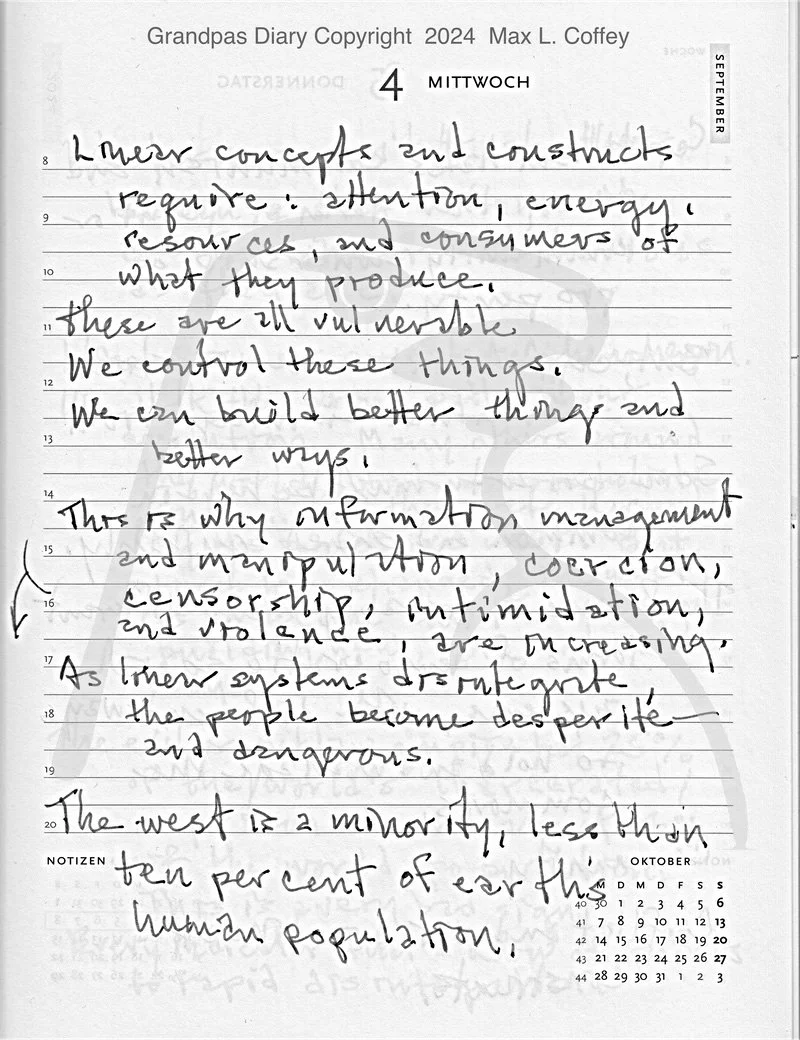 Grandpas Diary Copyright 2024 Max L. Coffey
4 MITTWOCH
SEPTEMBER
8 Linear concepts and constructs
require: attention, energy,
9
resources, and consumers of
10 what they produce.
11 These are all vulnerable.
We control these things.
12
We can build better things and
13
better ways.
14
This is why information management
15 and manipulation, coercion,
16 censorship, intimidation,
and violence, are increasing.
17
As linear systems disintegrate,
18 the people become desperite—
and dangerous.
19
20 The west is a minority, less than
NOTIZEN ten per cent of earths
human population.
OKTOBER
M D M D F S S
40 30 1 2 3 4 5 6
41 7 8 9 10 11 12 13
42 14 15 16 17 18 19 20
43 21 22 23 24 25 26 27
44 28 29 30 31 1 2 3